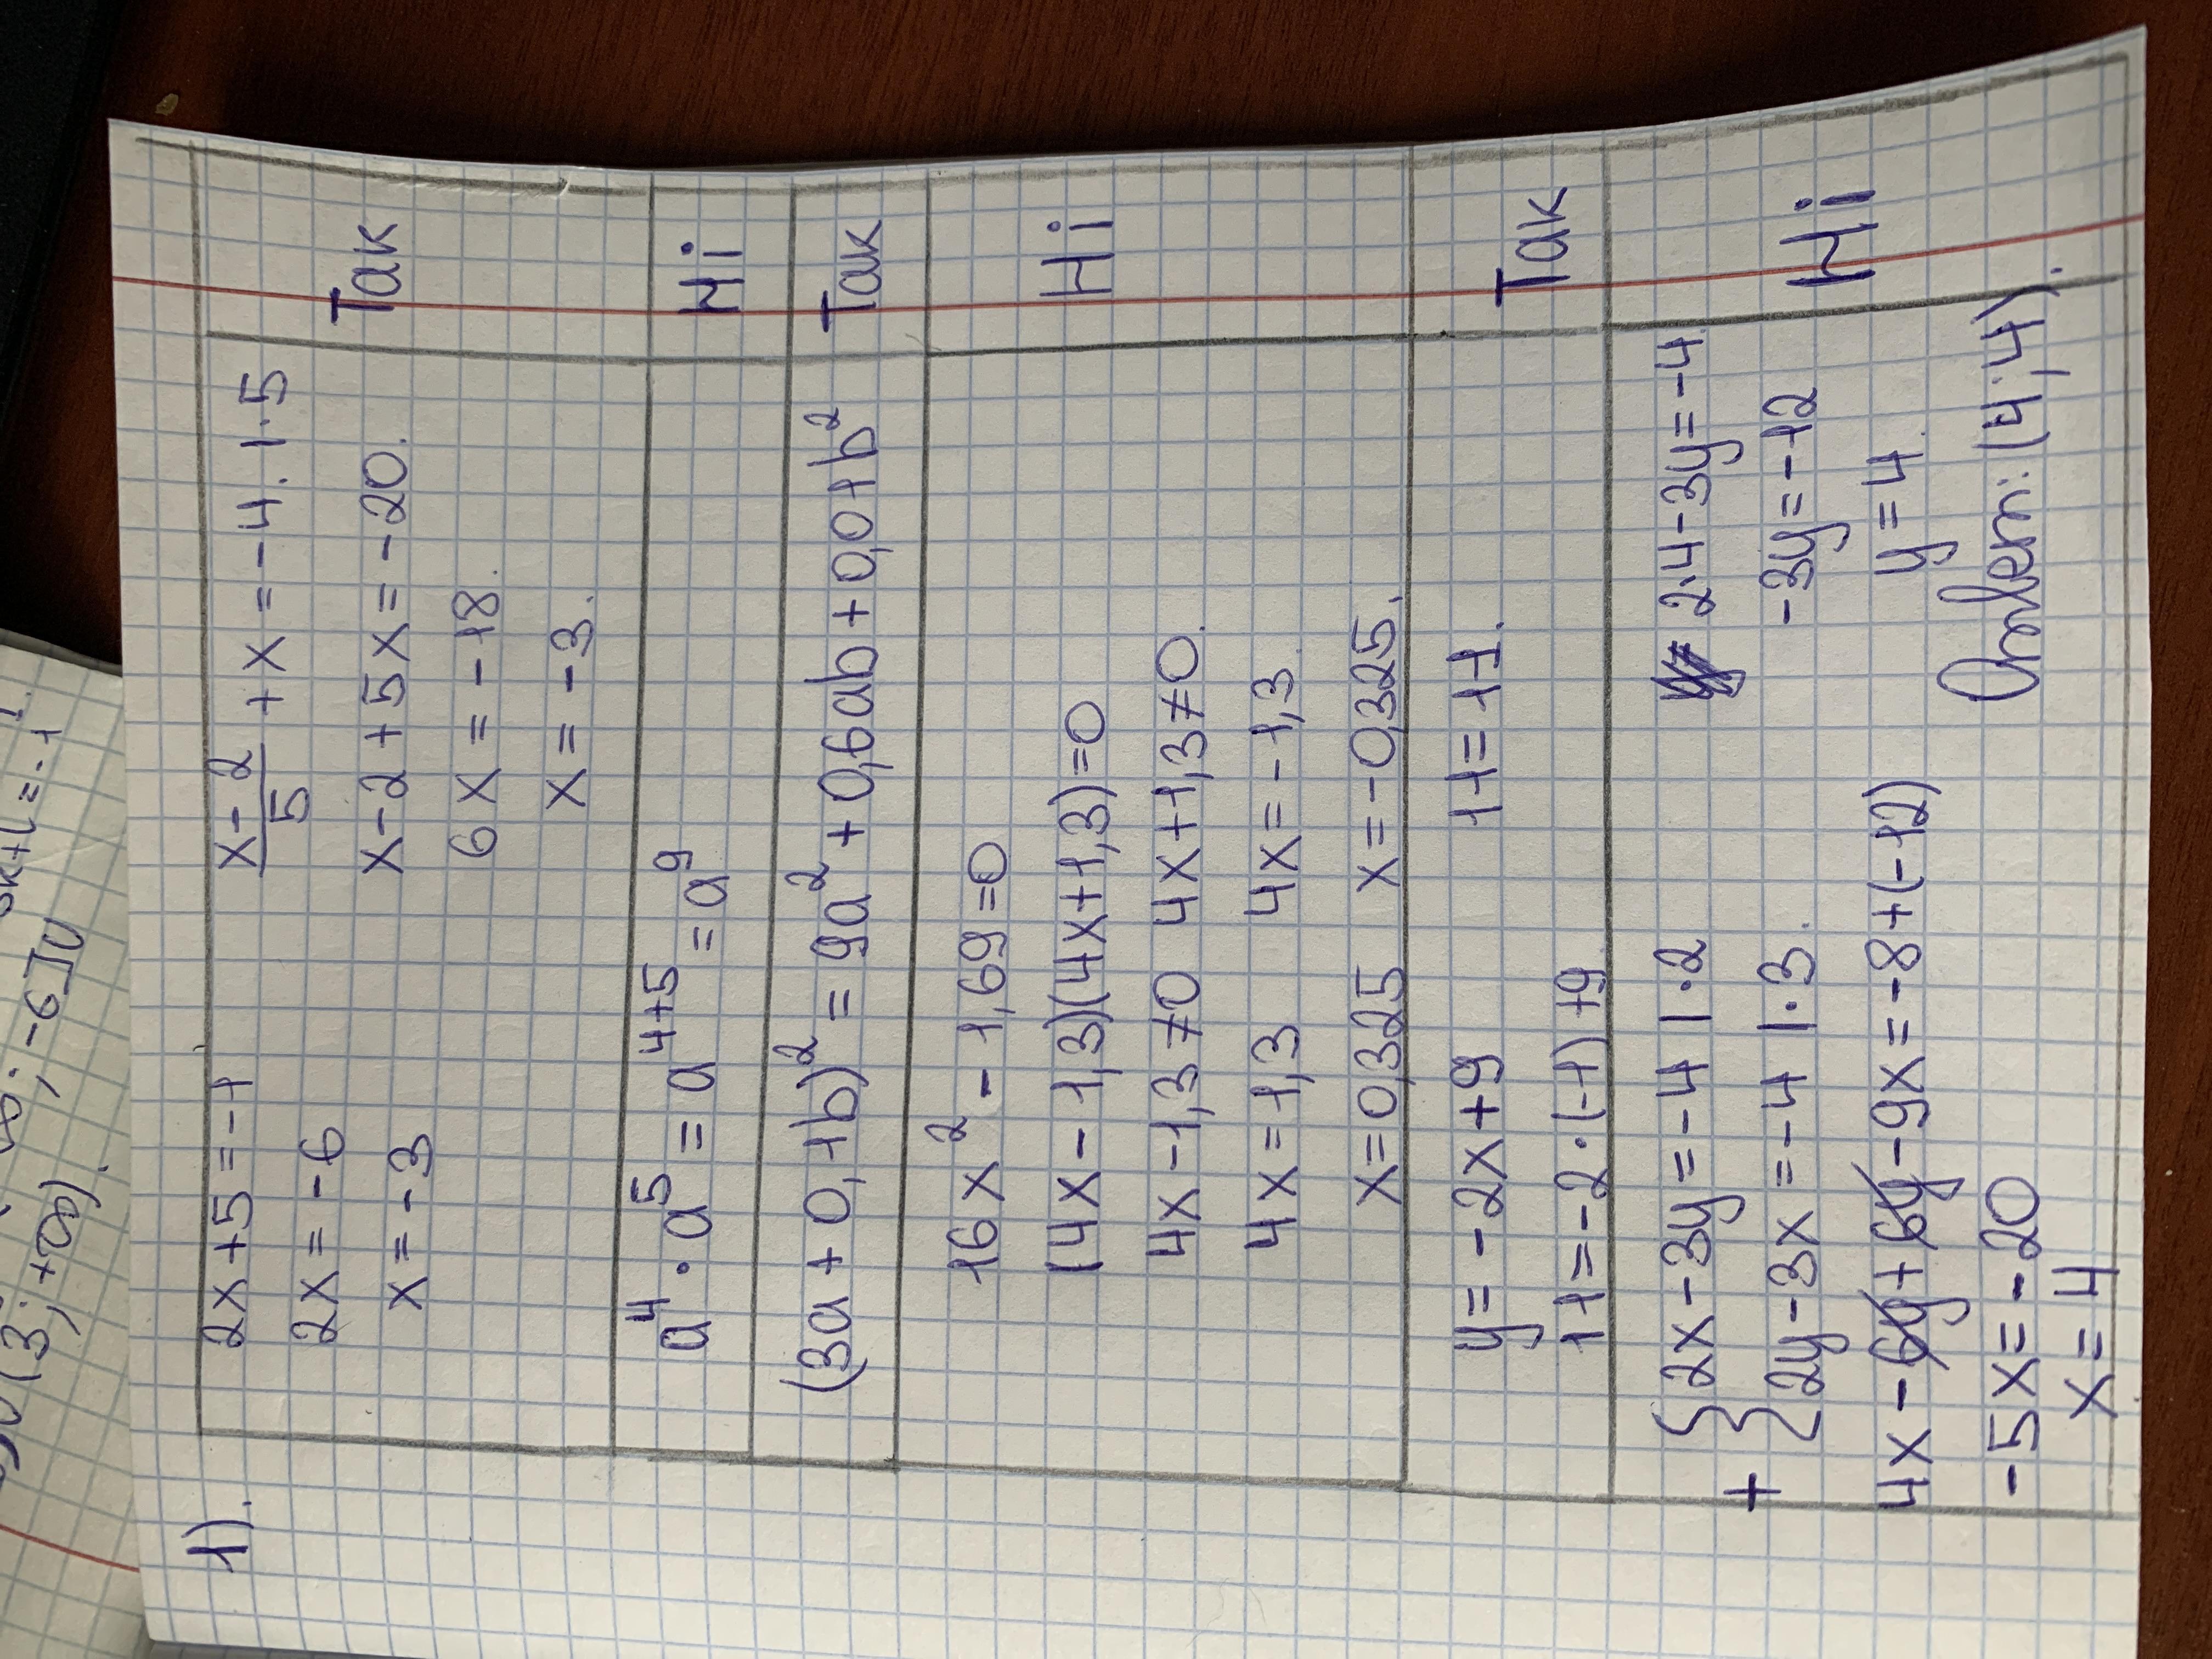 1).
2x+5=-1
2x=-6
x=-3
x-2/5 +x=-4. |·5
x-2+5x=-20.
6x=-18.
x=-3.
Так
a⁴·a⁵=a⁴⁺⁵=a⁹
Ні
(3a+0,1b)²=9a²+0,6ab+0,01b²
Так
16x²-1,69=0
(4x-1,3)(4x+1,3)=0
4x-1,3≠0 4x+1,3≠0.
4x=1,3 4x=-1,3
x=0,325 x=-0,325.
Ні
y=-2x+9
11=-2·(-1)+9
11=11.
Так
+ { 2x-3y=-4 |·2
2y-3x=-4 |·3.
4x-6y+6y-9x=-8+(-12)
-5x=-20
x=4
2·4-3y=-4
-3y=-12
y=4.
(4;4).
Ні
3;+∞).
;-6]U